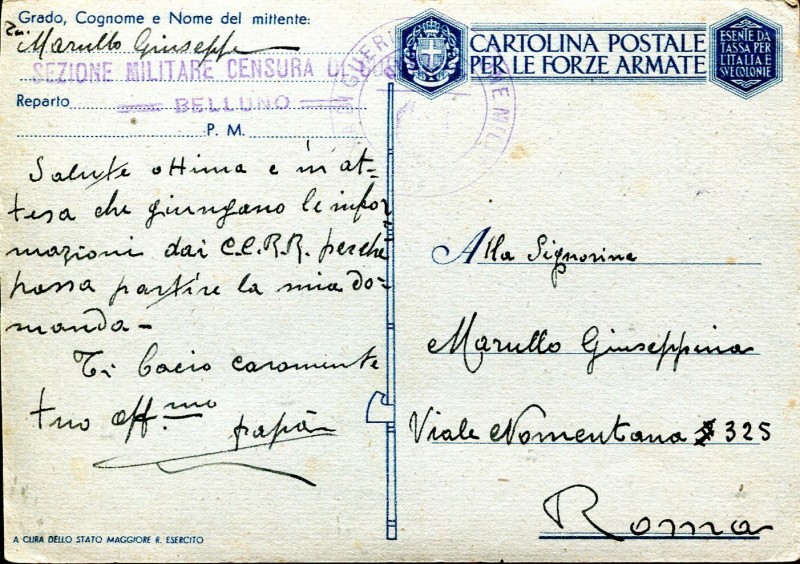 Grado, Cognome e Nome del mittente:
Marullo Giuseppe
SEZIONE MILITARE CENSURA DI
BELLUNO
Reparto
P. M.
CARTOLINA POSTALE
PER LE FORZE ARMATE
ESENTE DA
TASSA PER
L'ITALIA E
SUE COLONIE
Salute ottima e in at-
tesa che giungano le infor
mazioni dai C.C.R.R. perche
possa partire la mia do-
manda -
Ti bacio caramente
tuo aff.mo
papà
Alla Signorina
Marullo Giuseppina
Viale Nomentana 325
Roma
A CURA DELLO STATO MAGGIORE R. ESERCITO